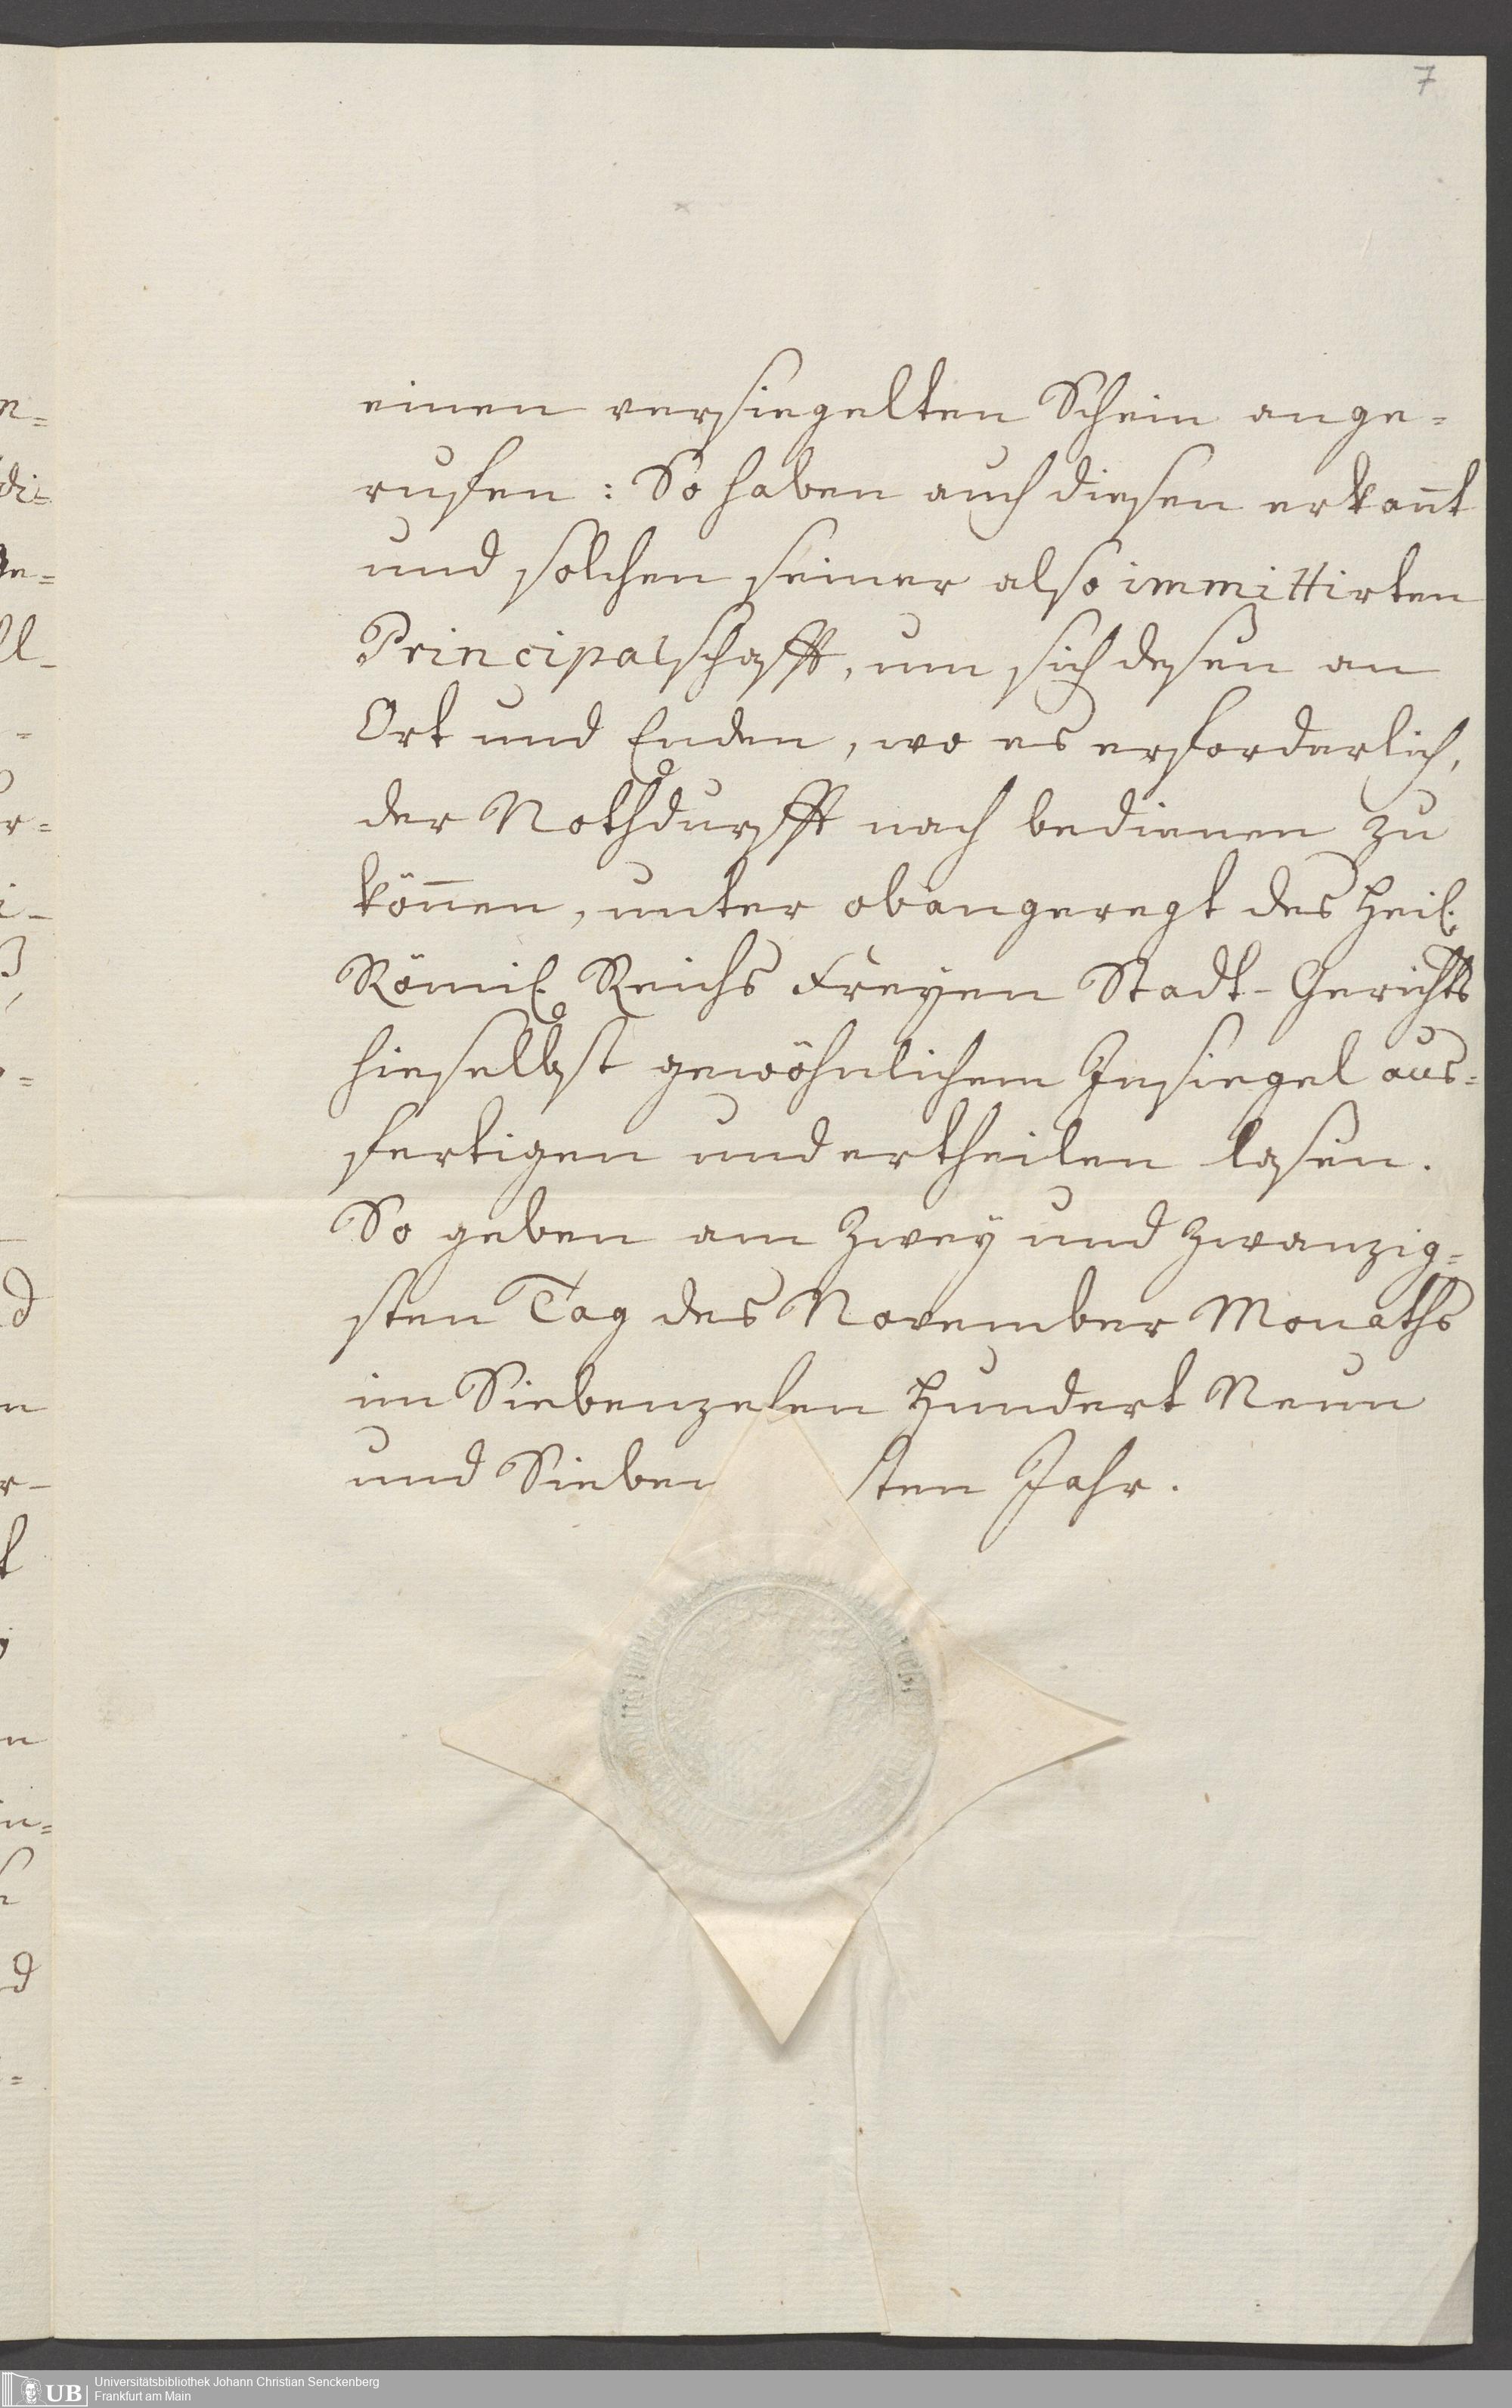 7
einen versiegelten Schein ange=
rufen: So haben auch diesen erkañt
und solchen seiner also immittirten
Principalschafft, um sich deßen an
Ort und Enden, wo es erforderlich,
der Nothdurfft nach bedienen zu
köñen, unter obangeregt des Heil.
Römis. Reichs Freyen Stadt-Gerichts
hieselbst gewöhnlichem Insiegel aus=
fertigen und ertheilen laßen.
So geben am Zwey und Zwanzig=
sten Tag des November Monaths
im Siebenzehen Hundert Neun
und Sieben sten Jahr.
UB Universitätsbibliothek Johann Christian Senckenberg
Frankfurt am Main